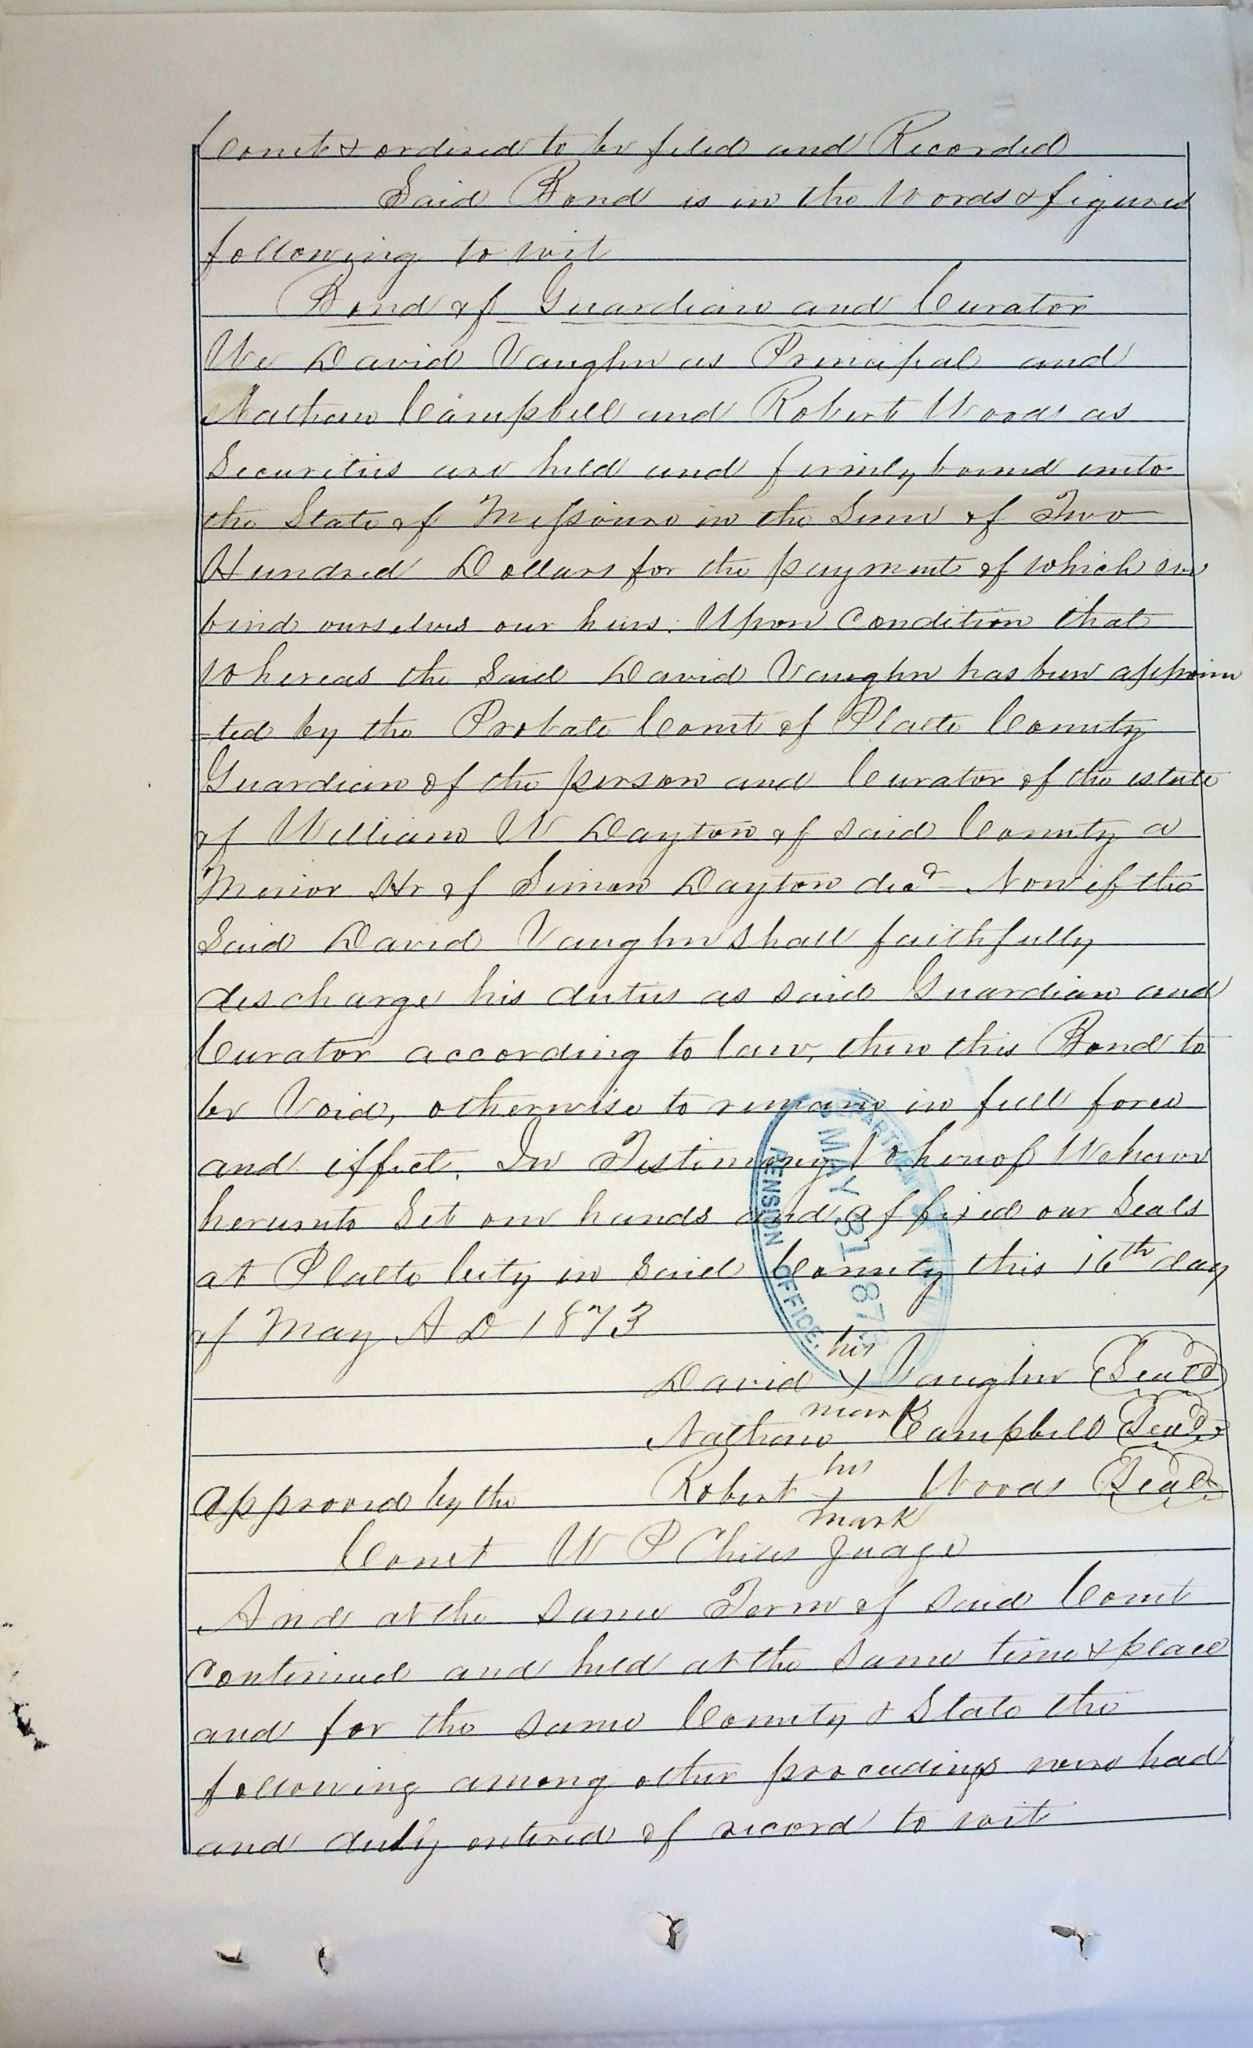 Court & ordered to be filed and Recorded
Said Bond is in the words & figures
following to wit
Bond of Guardian and Curator
We David Vaughn as Principal and
Nathan Campbell and Robert Woods as
Securities are held and firmly bound unto
the State of Missouri in the Sum of Two
Hundred Dollars for the payment of which we
bind ourselves our heirs. Upon Condition that
Whereas the Said David Vaughn has been appoin
ted by the Probate Court of Platte County
Guardian of the person and Curator of the estate
of William W Dayton of said County a
Minor Hr of Simon Dayton decd Now if the
Said David Vaughn shall faithfully
discharge his duties as said Guardian and
Curator according to law, then this Bond to
be Void, otherwise to remain in full force
and effect. In Testimony Whereof We have
hereunto Set our hands and affixed our Seals
at Platte City in Said County this 16th day
of May A D 1873
his
David X Vaughn Seal
mark
Nathan Campbell Seal
his
approved by the Robert X Woods Seal
mark
Court W P Chiles Judge
And at the same Term of said Court
Continued and held at the same time & place
and for the same County & State the
following among other proceedings were had
and duly entered of record to wit
MAY 31 187
PENSION OFFICE.